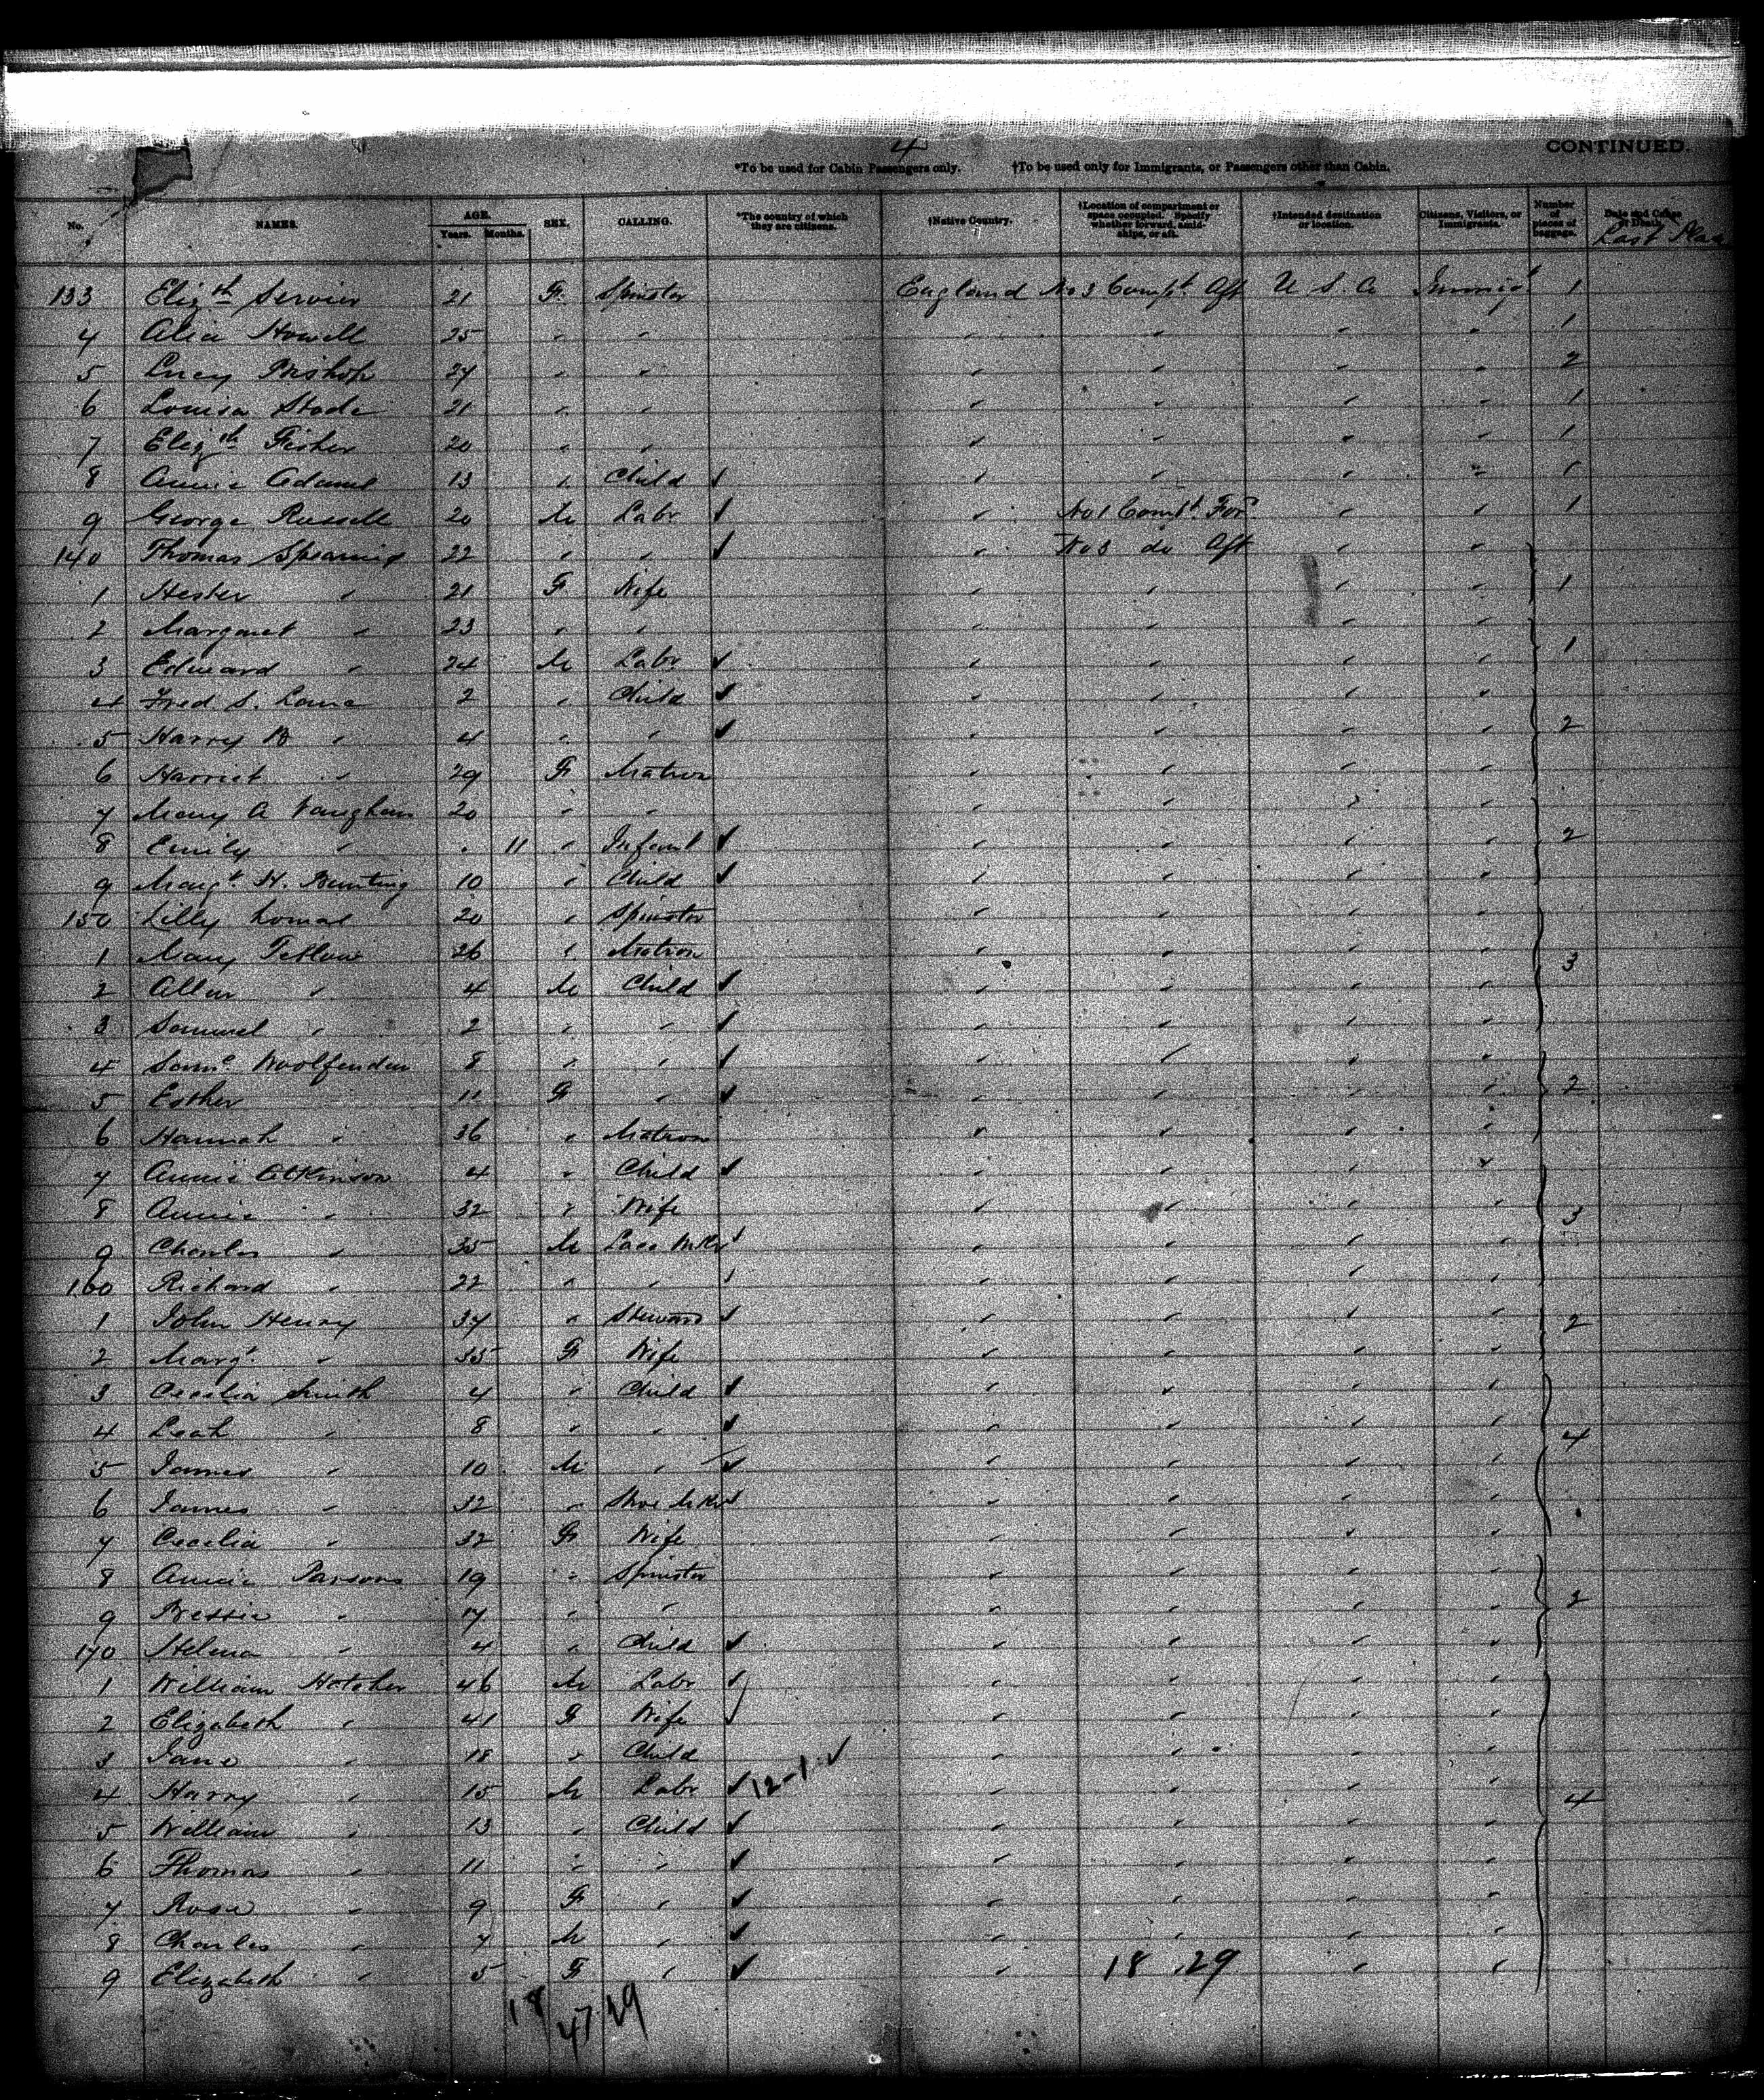 4
CONTINUED.
*To be used for Cabin Passengers only. †To be used only for Immigrants, or Passengers other than Cabin.
No. NAMES. AGE. Years. Months. SEX. CALLING. *The country of which they are citizens. †Native Country. †Location of compartment or space occupied. Specify whether forward, amidships, or aft. †Intended destination or location. Citizens, Visitors, or Immigrants. Number of pieces of baggage. Date and Cause of Death. Last Place
133 Elizth Servier 21 F. Spinster England No 3 Compt. Aft U S A Immigt 1
4 Alice Howell 25 " " " " " " 1
5 Lucy Bishop 27 " " " " " " 2
6 Louisa 21 " " " " " " 1
7 Elizth Fisher 20 " " " " " " 1
8 Annie Adams 13 " Child ✓ " " " " 1
9 George Russell 20 M Labr ✓ " No 1 Compt. Ford " " 1
140 Thomas Spearing 22 " " ✓ " No 3 do Aft " "
1 Hester " 21 F Wife " " " " 1
2 Margaret " 23 " " " " " "
3 Edward " 24 M Labr ✓ " " " " 1
4 Fred S. Lane 2 " Child ✓ " " " "
5 Harry B " 4 " " ✓ " " " " 2
6 Harriet " 29 F Matron " " " "
7 Mary A Vaughan 20 " " " " " "
8 Emily " . 11 " Infant ✓ " " " " 2
9 Margt. H. Bunting 10 " Child ✓ " " " "
150 Lilly Lomas 20 " Spinster " " " "
1 Mary 26 " Matron " " " " 3
2 Allen " 4 M Child ✓ " " " "
3 Samuel " 2 " " ✓ " " " "
4 Woolfenden 8 " " ✓ " " " "
5 Esther 11 F " ✓ " " " " 2
6 Hannah " 36 " Matron " " " "
7 Annie Atkinson 4 " Child ✓ " " " "
8 Annie " 32 " Wife " " " " 3
9 Charles " 35 M Lace Mkr ✓ " " " "
160 Richard " 22 " " ✓ " " " "
1 John Henry 37 " Steward ✓ " " " " 2
2 Margt. " 35 F Wife " " " "
3 Cecelia Smith 4 " Child ✓ " " " "
4 Leah " 8 " " ✓ " " " " 4
5 James " 10 M " ✓ " " " "
6 James " 32 " Shoe Mkr ✓ " " " "
7 Cecelia " 32 F Wife " " " "
8 Annie Parsons 19 " Spinster " " " "
9 Bessie " 17 " " " " " " 2
170 Helena " 4 " Child ✓ " " " "
1 William Hatcher 46 M Labr ✓ " " " "
2 Elizabeth " 41 F Wife ✓ " " " "
3 Jane " 18 " Child " " " "
4 Harry " 15 M Labr ✓ 12-1 ✓ " " " " 4
5 William " 13 " Child ✓ " " " "
6 Thomas " 11 " " ✓ " " " "
7 Rose " 9 F " ✓ " " " "
8 Charles " 7 M " ✓ " " " "
9 Elizabeth " 5 F " ✓ " 18 . 29 " "
18/47/29